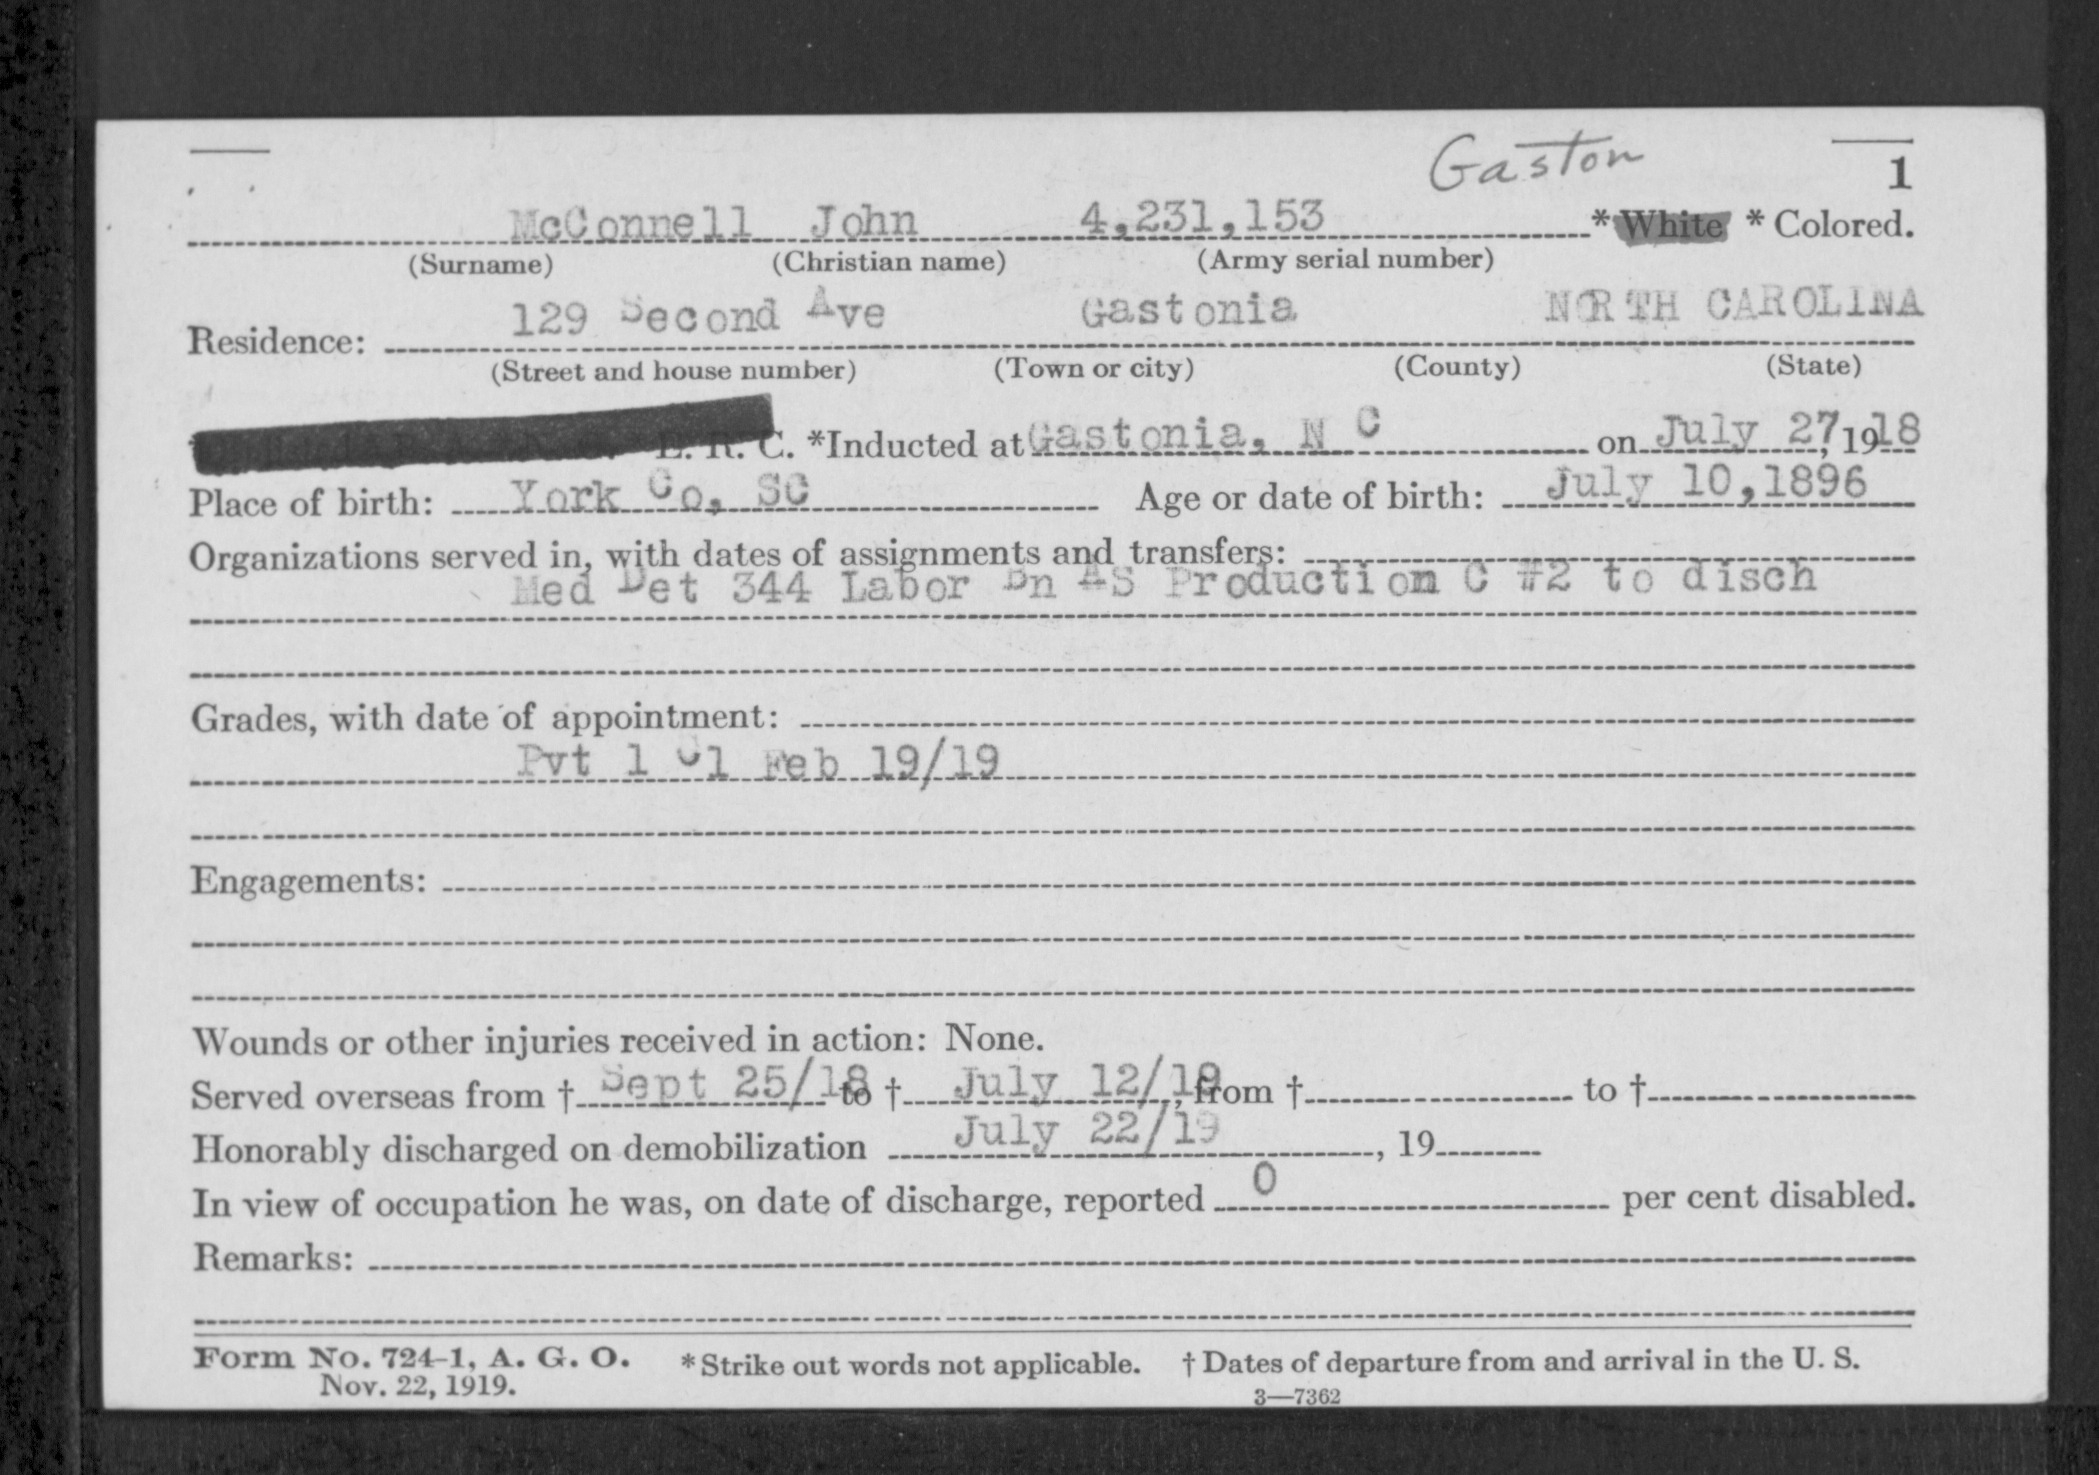 Gaston
1
McConnell John 4,231,153 * White * Colored.
(Surname) (Christian name) (Army serial number)
129 Second Ave Gastonia NORTH CAROLINA
Residence:
(Street and house number) (Town or city) (County) (State)
E. R. C. *Inducted at Gastonia, N C on July 27, 1918
Place of birth: York Co, SC Age or date of birth: July 10,1896
Organizations served in, with dates of assignments and transfers:
Med Det 344 Labor Bn AS Production C #2 to disch
Grades, with date of appointment:
Pvt 1 Cl Feb 19/19
Engagements:
Wounds or other injuries received in action: None.
Served overseas from † Sept 25/18 to † July 12/19, from † to †
Honorably discharged on demobilization July 22/19, 19
In view of occupation he was, on date of discharge, reported 0 per cent disabled.
Remarks:
Form No. 724-1, A. G. O. * Strike out words not applicable. † Dates of departure from and arrival in the U. S.
Nov. 22, 1919.
3—7362